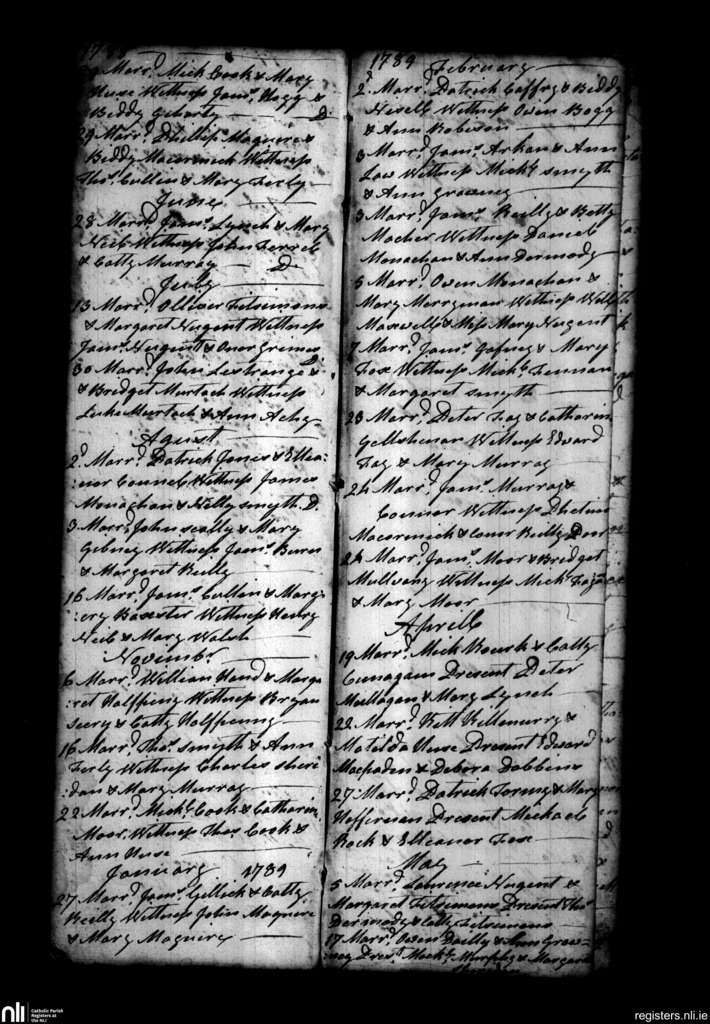 Marrd. Mick Cook & Mary
Huse Wittness Jams. Hogg &
Beddy Geharty — D.
29 Marrd. Phillip Maguere &
Beddy Macormick Wittness
Thos. Cullin & Mary Ferly
June
28 Marrd. Jams. Lynch & Mary
Neil Wittness John Ferrel
& Catty Murray — D
July
13 Marrd. Olliver Fitsimons
& Margaret Nugent Wittness
Jams. Nugent & Onor
30 Marrd. John Lestrange &
& Bridget Murtach Wittness
Luke Murtach & Ann
Agust
2d. Marrd. Patrick Jones & Ellea
:nor Connel Wittness James
Monachan & Nelly Smyth D.
3 Marrd. John Scally & Mary
Gibney Wittness Jams. Burn
& Margaret Reilly
16 Marrd. Jams. Cullen & Marg
:ery Baxter Wittness Henry
Neil & Mary Walsh
Novembr
6 Marrd. William Hand & Marga
:ret Halfpeny Wittness Bryan
Seery & Catty Halfpenny
16 Marrd. Thos. Smyth & Ann
Ferly Wittness Charles Sheri
:dan & Mary Murray
22 Marrd. Michl. Cook & Catharin
Moor Wittness Thos. Cook &
Ann Huse
January 1789
27 Marrd. Jams. Gillick & Catty
Reilly Wittness John Maguere
& Mary Maguere
1789 February
2 Marrd. Patrick Caffry & Beddy
Newell Wittness Owen Bogg
& Ann Robison
3 Marrd. Jams. Arkan & Ann
Law Wittness Michl. Smyth
& Ann
3 Marrd. Jams. Reilly & Betty
Macher Wittness Daniel
Monachan & Ann Dermody
5 Marrd. Owen Monachan &
Mary Merryman Wittness
Maxwell & Miss Mary Nugent
7 Marrd. Jams. Gafney & Mary
Fox Wittness Michl.
& Margaret Smyth
23 Marrd. Peter Fay & Catharin
Wittness Edward
Fay & Mary Murray
24 Marrd. Jams. Murray &
Connor Wittness Phelim
Macormick & Reilly
24 Marrd. Jams. Moor & Bridget
Mullvany Wittness Michl. Fay
& Mary Moor
Aprell
19 Marrd. Mick Rourk & Catty
Cunagan Present Peter
Mullagan & Mary Lynch
22 Marrd. Kitt Killmurry &
Matilda Huse Present Edward
Macfaden & Debora Dobbins
27 Marrd. Patrick Tormy & Mary
Hefferman Present Michael
Rock & Elleanor Fox
May
5 Marrd. Laurence Nugent &
Margaret Fitsimons Present Thos.
Dermody & Catty Fitsimons
17 Marrd. Owen Dailly & Ann
Prest. Michl. Murphy & Margaret
nli
Catholic Parish
Registers at
the NLI
registers.nli.ie